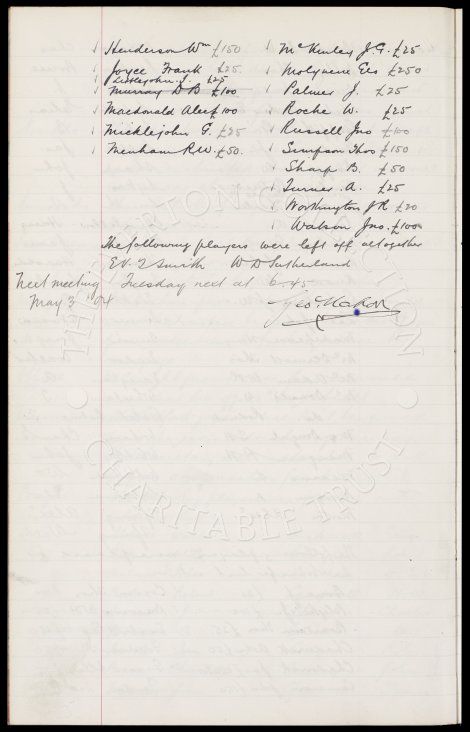 Henderson Wm £150
Joyce Frank £25
Littlejohn J. £25
Murray D B £100
Macdonald Alec £100
Micklejohn G. £25
Menham R.W. £50.
McKinley J.G. £25
Molyneux Geo £250
Palmer J. £25
Roche W. £25
Russell Jno £100
Simpson Thos £150
Sharp B. £50
Turner A. £25
Worthington J R £20
Watson Jno. £100
The following players were left off altogether
W D Sutherland
Next meeting Tuesday next at 6.45
May 3 '04
THE EVERTON COLLECTION
CHARITABLE TRUST